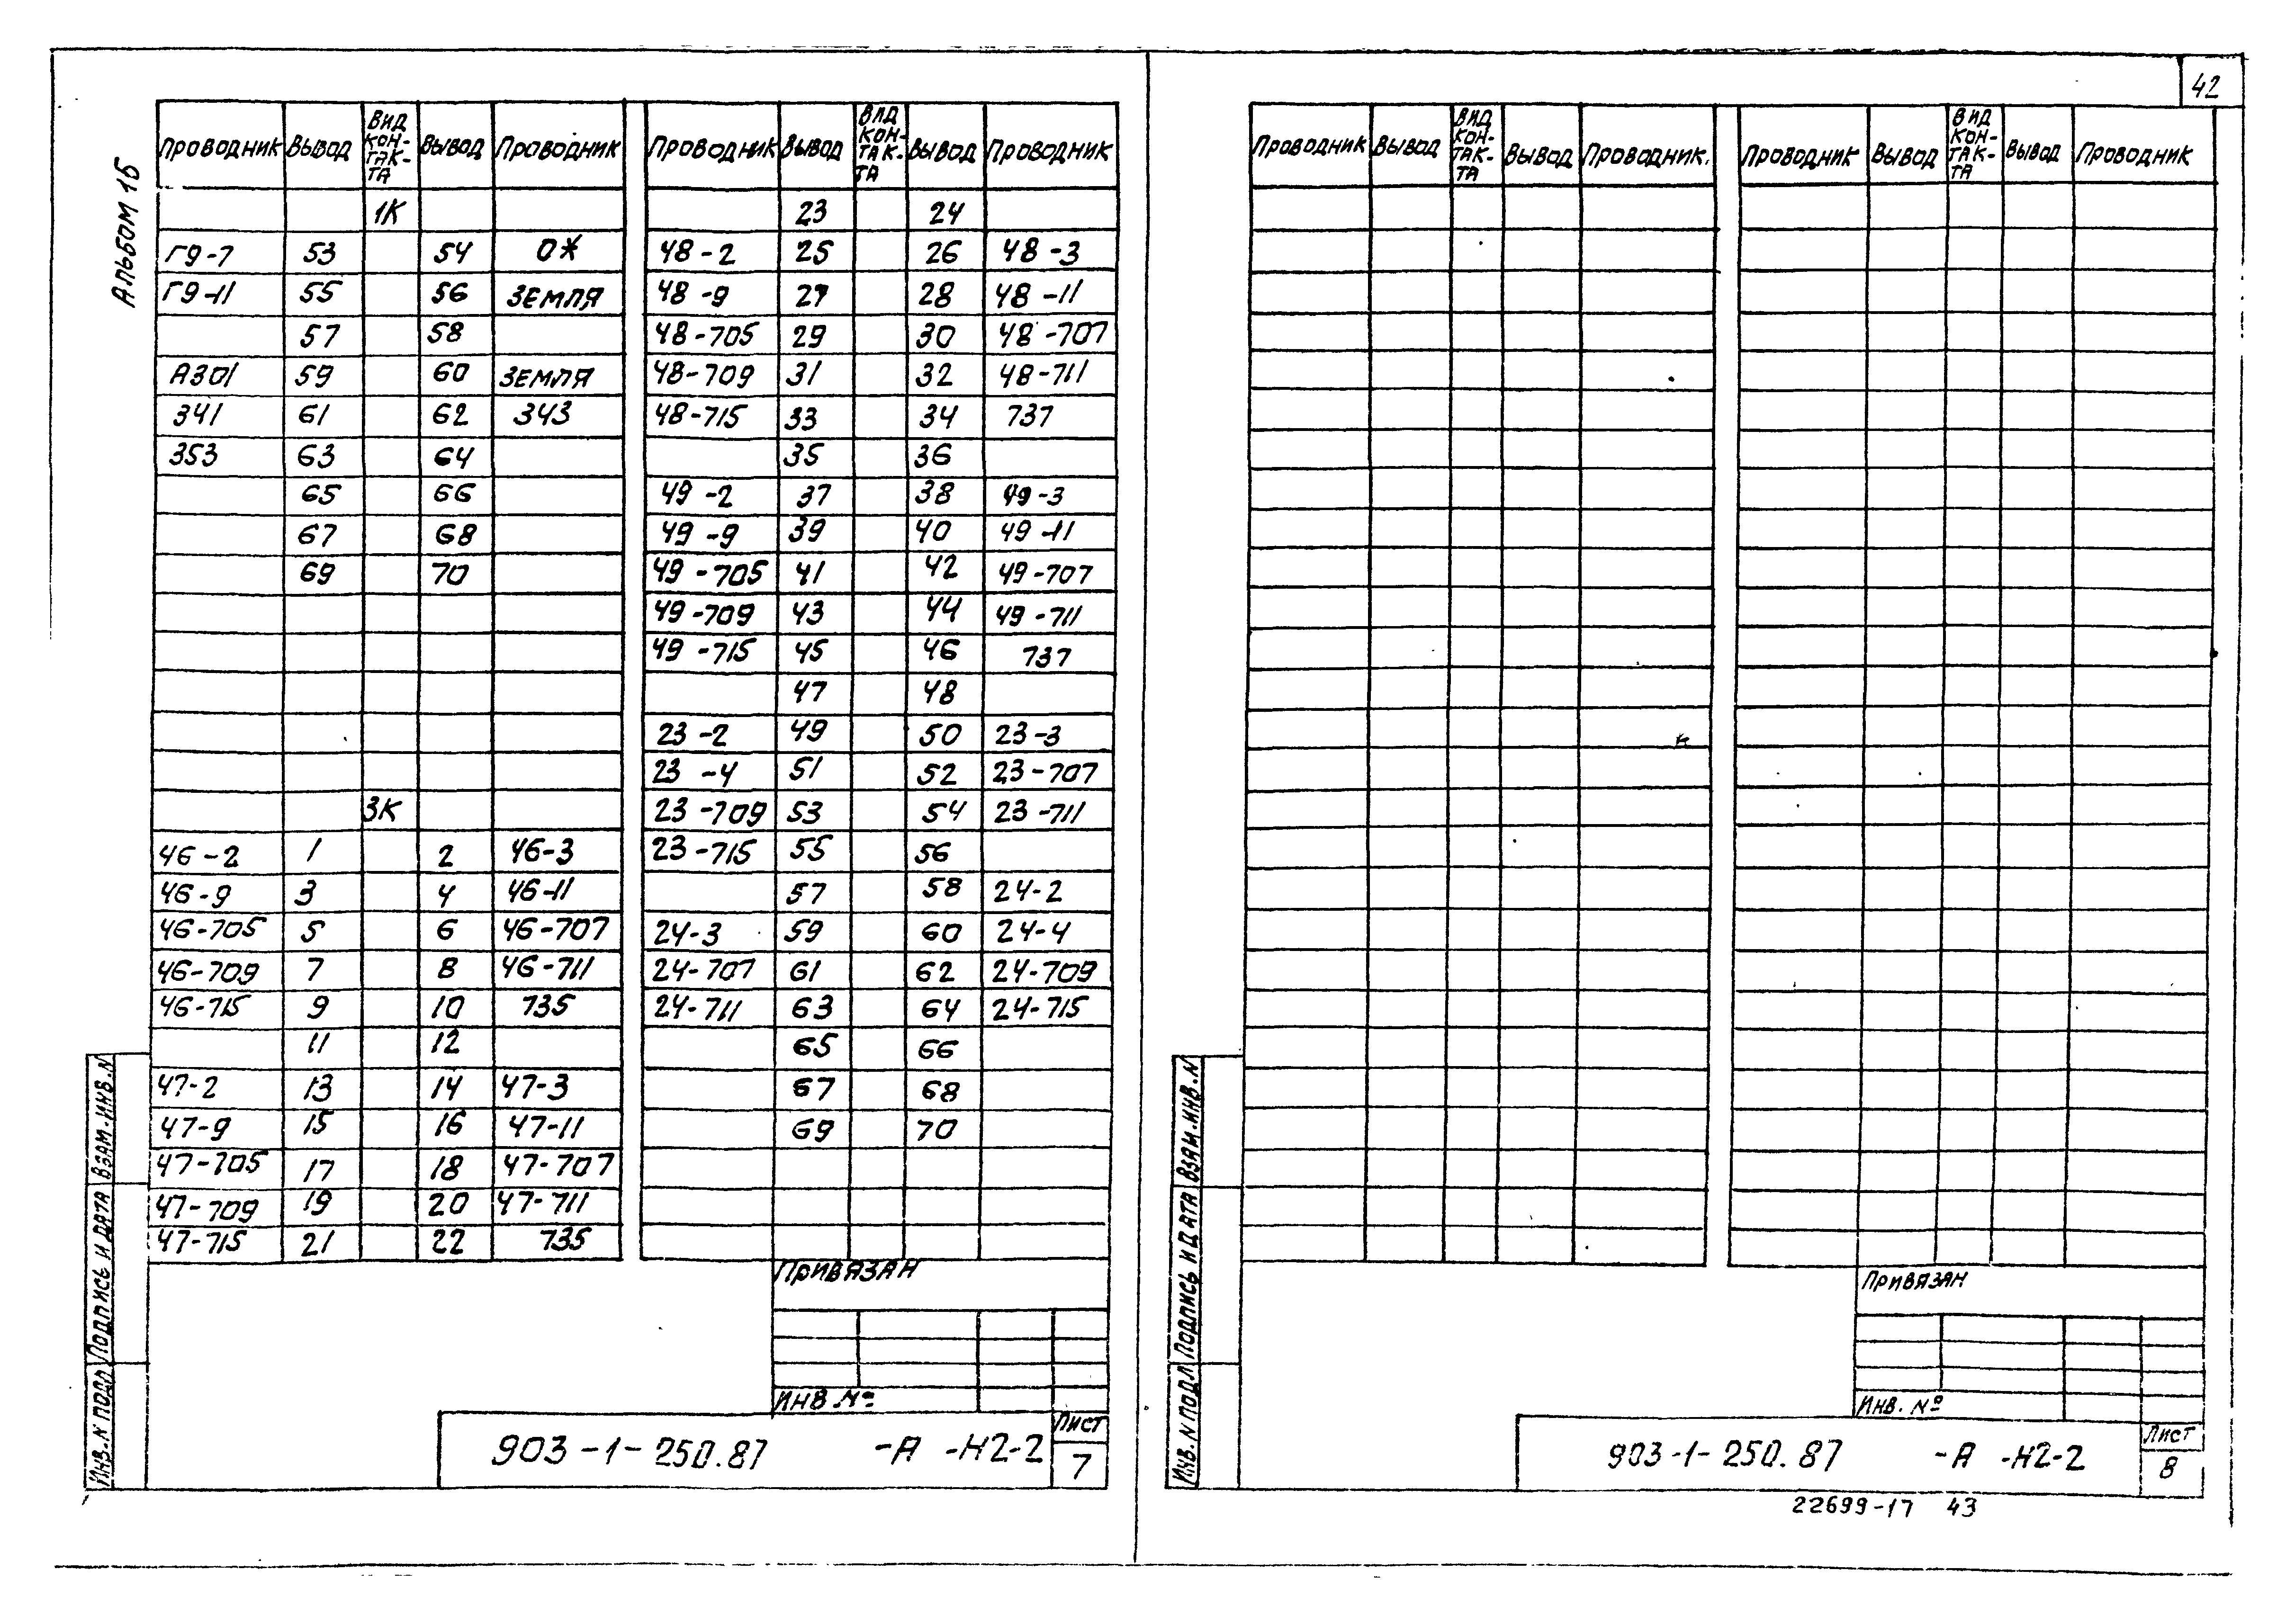 42
АЛЬБОМ 15
Проводник Вывод Вид кон-так-та Вывод Проводник
1К
Г9-7 53 54 0Ж
Г9-11 55 56 ЗЕМЛЯ
57 58
А301 59 60 ЗЕМЛЯ
341 61 62 343
353 63 64
65 66
67 68
69 70
3К
46-2 1 2 46-3
46-9 3 4 46-11
46-705 5 6 46-707
46-709 7 8 46-711
46-715 9 10 735
11 12
47-2 13 14 47-3
47-9 15 16 47-11
47-705 17 18 47-707
47-709 19 20 47-711
47-715 21 22 735
Проводник Вывод Вид кон-так-та Вывод Проводник
23 24
48-2 25 26 48-3
48-9 27 28 48-11
48-705 29 30 48-707
48-709 31 32 48-711
48-715 33 34 737
35 36
49-2 37 38 49-3
49-9 39 40 49-11
49-705 41 42 49-707
49-709 43 44 49-711
49-715 45 46 737
47 48
23-2 49 50 23-3
23-4 51 52 23-707
23-709 53 54 23-711
23-715 55 56
57 58 24-2
24-3 59 60 24-4
24-707 61 62 24-709
24-711 63 64 24-715
65 66
67 68
69 70
ПРИВЯЗАН
ИНВ. №
903-1-250.87 -А -Н2-2
Лист
7
ИНВ. N ПОДЛ ПОДПИСЬ И ДАТА ВЗАМ. ИНВ. N
Проводник Вывод Вид кон-так-та Вывод Проводник.
Проводник Вывод Вид кон-так-та Вывод Проводник
ПРИВЯЗАН
ИНВ. №
903-1-250.87 -А -Н2-2
Лист
8
ИНВ. N ПОДЛ ПОДПИСЬ И ДАТА ВЗАМ. ИНВ. N
22699-17 43